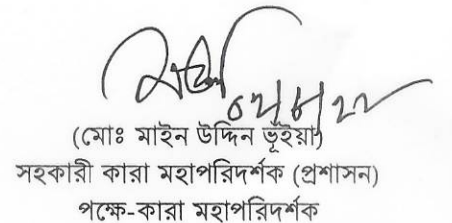 (মোঃ মাইন উদ্দিন ভূঁইয়া)
সহকারী কারা মহাপরিদর্শক (প্রশাসন)
পক্ষে-কারা মহাপরিদর্শক